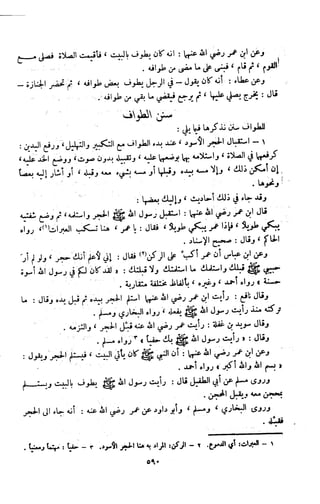 وعن ابن عمر رضي الله عنهما : أنه كان يطوف بالبيت ، فأقيمت الصلاة فصلى مـع
القوم ، ثم قام ، فبنى على ما مضى من طوافه .
وعن عطاء : أنه كان يقول - في الرجل يطوف بعض طوافه ، ثم تحضر الجنازة -
قال : يخرج يصلي عليها ، ثم يرجع فيقضي ما بقي من طوافه .
سنن الطواف
للطواف سنن نذكرها فيما يلي :
١ - استقبال الحجر الأسود ، عند بدء الطواف مع التكبير والتهليل ، ورفع اليدين :
كرفعهما في الصلاة ، واستلامه بهما بوضعهما عليه ، وتقبيله بدون صوت ، ووضع الخد عليه ،
إن أمكن ذلك ، وإلا مسه بيده وقبلها أو مسه بشيء معه وقبله ، أو أشار إليه بعصا
ونحوها .
وقد جاء في ذلك أحاديث ، وإليك بعضها :
قال ابن عمر رضي الله عنهما : استقبل رسول الله ﷺ الحجر واستلمه ، ثم وضع شفتيه
يبكي طويلا ، فإذا عمر يبكي طويلا ، فقال : يا عمر ، هنا تسكب العبرات(١) رواه
الحاكم ، وقال : صحيح الإسناد .
وعن ابن عباس أن عمر أكب على الركن(٢) فقال : إني لأعلم أنك حجر ، ولو لم أر
حبيبي ﷺ قبلك واستلمك ما استلمتك ولا قبلتك : « لقد كان لكم في رسول الله أسوة
حسنة » رواه أحمد ، وغيره ، بألفاظ مختلفة متقاربة .
وقال نافع : رأيت ابن عمر رضي الله عنهما استلم الحجر بيده ثم قبل يده وقال : ما
تركته منذ رأيت رسول الله ﷺ يفعله ، رواه البخاري ومسلم .
وقال سويد بن غفلة : رأيت عمر رضي الله عنه قبل الحجر ، والتزمه .
وقال : « رأيت رسول الله ﷺ بك حفياً » ٣ رواه مسلم .
وعن ابن عمر رضي الله عنهما : أن النبي ﷺ كان يأتي البيت ، فيستلم الحجر ويقول :
« بسم الله والله أكبر » رواه أحمد .
وروى مسلم عن أبي الطفيل قال : رأيت رسول الله ﷺ يطوف بالبيت ويستـلم
بمحجن معه ويقبل المحجن .
وروى البخاري ، ومسلم ، وأبو داود عن عمر رضي الله عنه : أنه جاء إلى الحجر
فقبله .
١ - العبرات : أي الدموع . ٢ - الركن : المراد به هنا الحجر الأسود . ٣ - حفياً : مهتماً ومعنياً .
٥٩٠